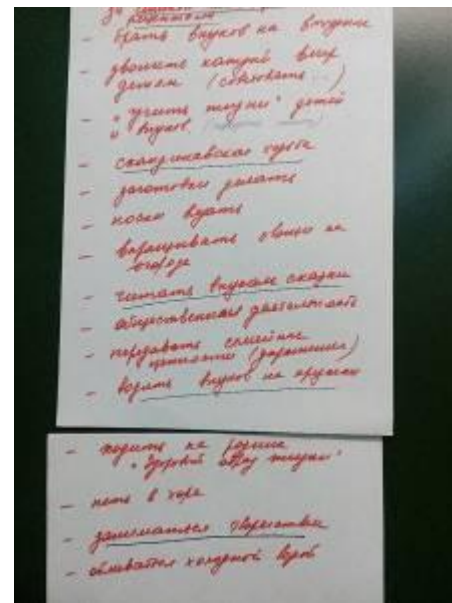 за
родителями
- брать внуков на
- звонить каждый вечер
детям (советовать ...)
- "учить жизни" детей
и внуков
- скандинавская ходьба
- заготовки делать
- носки вязать
- выращивать овощи на
огороде
- читать внукам сказки
- общественная деятельность
- передавать семейные
ценности
- водить внуков на кружки
- ходить на
"Здоровый образ жизни"
- петь в хоре
- заниматься творчеством
- обливаться холодной водой